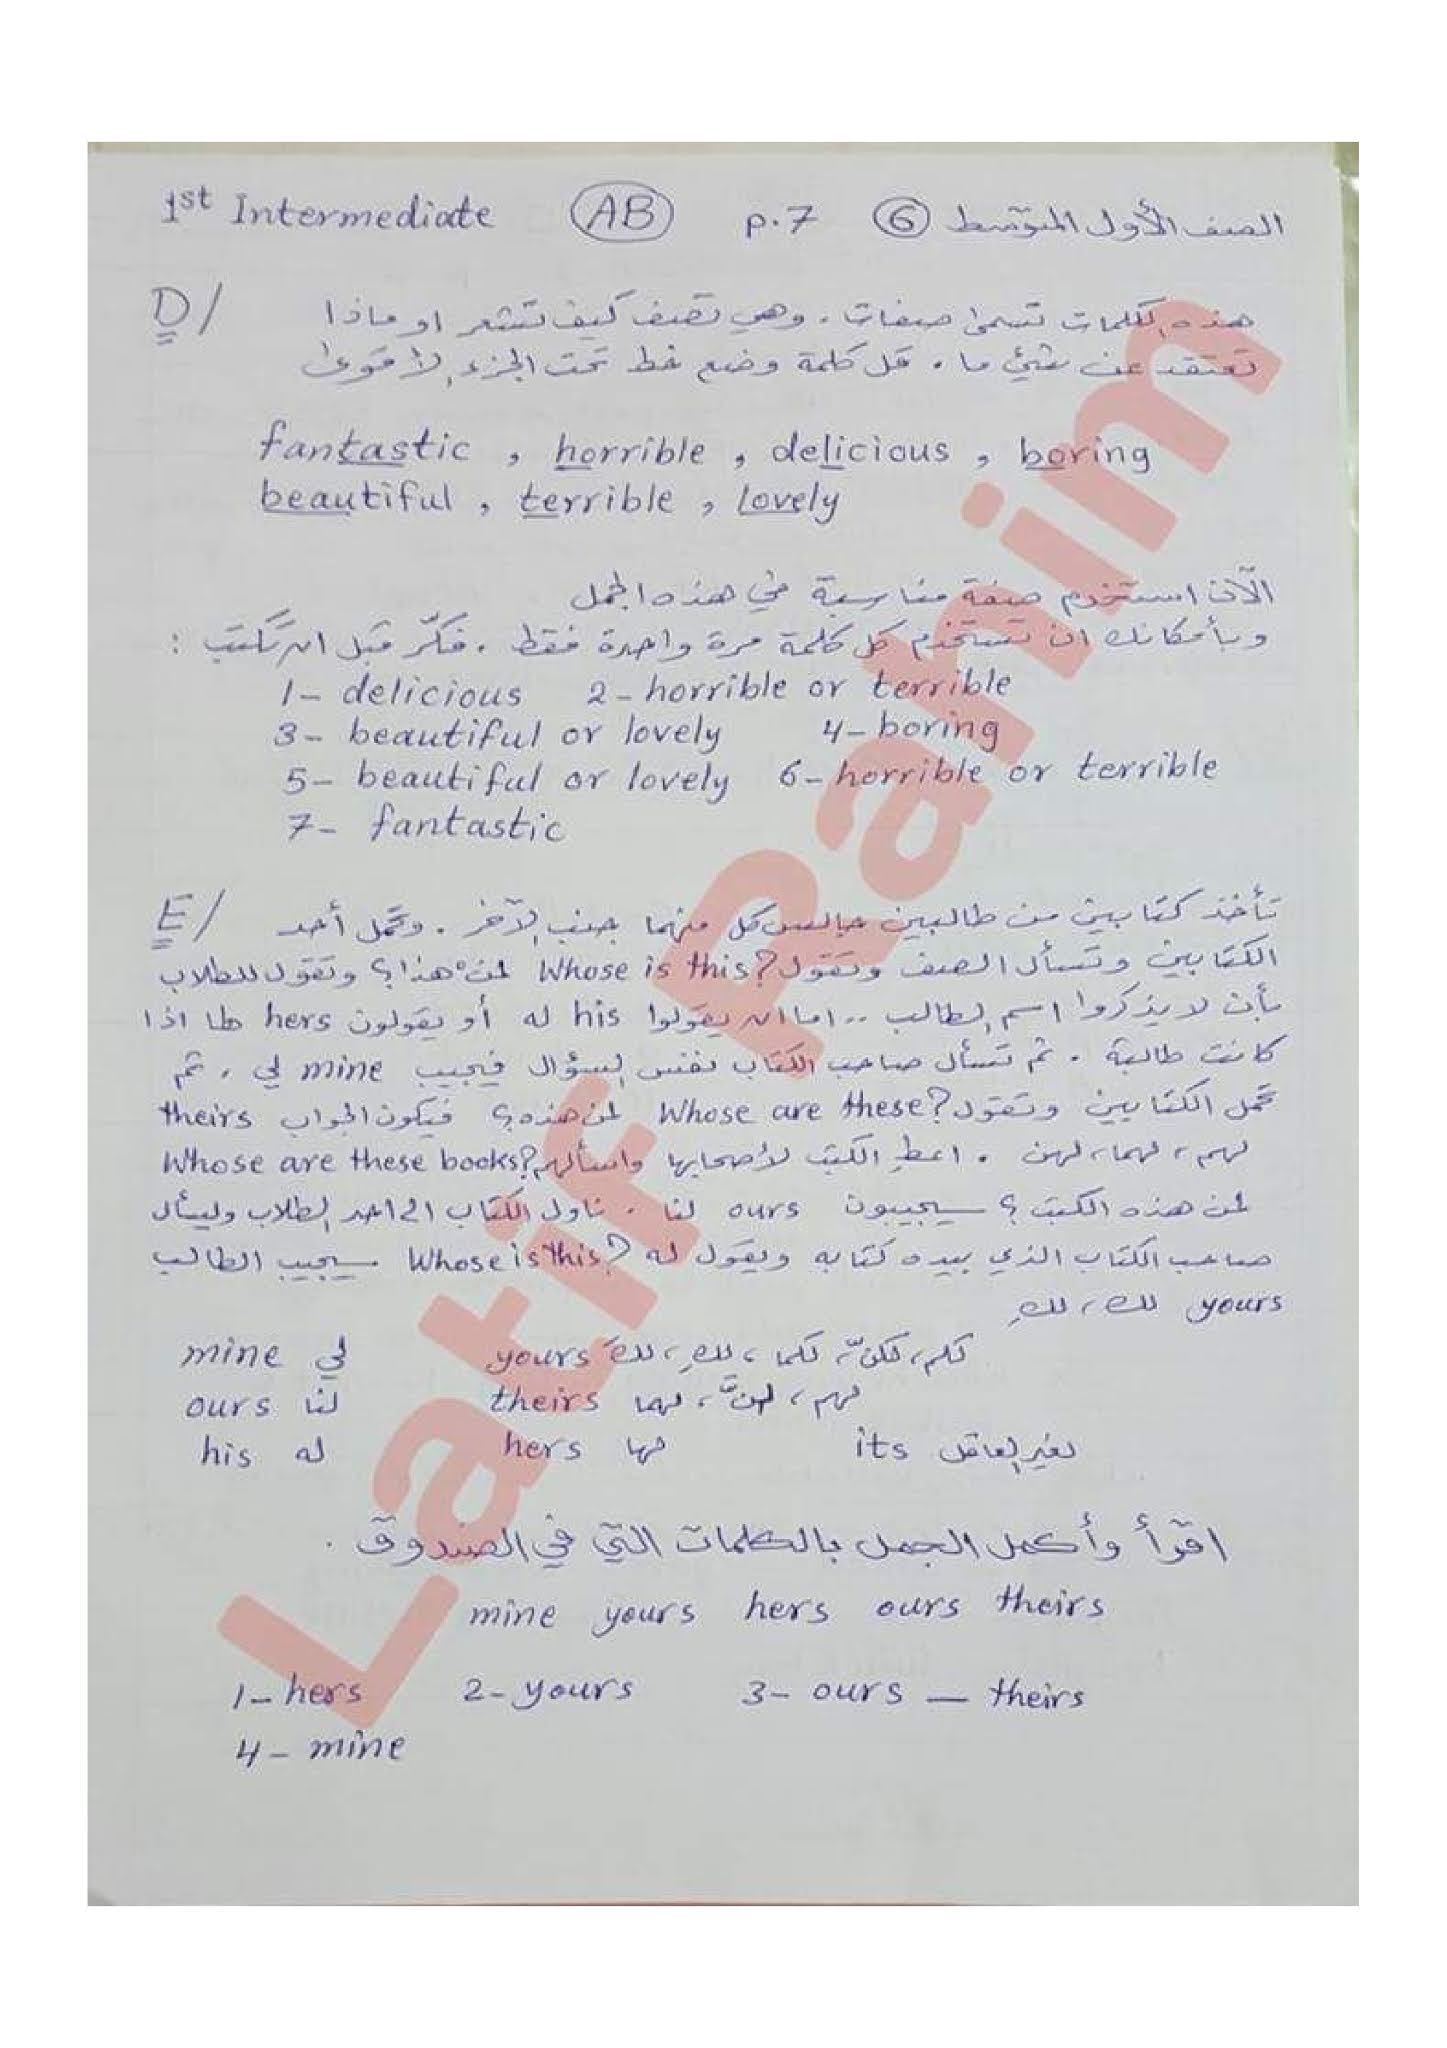 1st Intermediate AB p.7 6 الصف الأول المتوسط
D/ هذه الكلمات تسمى صفات . وهي تصف كيف تشعر او ماذا
تعتقد عن شيئ ما . قل كلمة وضع خط تحت الجزء الاقوى
fantastic , horrible , delicious , boring
beautiful , terrible , lovely
الآن استخدم صفة مناسبة في هذه الجمل
وبأمكانك ان تستخدم كل كلمة مرة واحدة فقط . فكّر قبل ان تكتب :
1- delicious 2- horrible or terrible
3- beautiful or lovely 4- boring
5- beautiful or lovely 6- horrible or terrible
7- fantastic
E/ تأخذ كتابين من طالبين جالس كل منهما جنب الآخر . وتحمل أحد
الكتابين وتسأل الصف وتقول Whose is this? لمن هذا ؟ وتقول للطلاب
بأن لا يذكروا اسم الطالب .. اما ان يقولوا his له أو يقولون hers لها اذا
كانت طالبة . ثم تسأل صاحب الكتاب نفس السؤال فيجيب mine لي . ثم
تحمل الكتابين وتقول Whose are these? لمن هذه ؟ فيكون الجواب theirs
لهم ، لهما، لهن . اعطِ الكتب لأصحابها واسألهم Whose are these books?
لمن هذه الكتب ؟ سيجيبون ours لنا . ناول الكتاب الى احد الطلاب وليسأل
صاحب الكتاب الذي بيده كتابه ويقول له Whose is this? سيجيب الطالب
yours لك ، لكِ
mine لي yours لكَ ، لكِ ، لكما ، لكنّ ، لكم
ours لنا theirs لهما ، لهنَّ ، لهم
his له hers لها its لغير العاقل
اقرأ وأكمل الجمل بالكلمات التي في الصندوق .
mine yours hers ours theirs
1- hers 2- yours 3- ours — theirs
4- mine
Latif Rahim